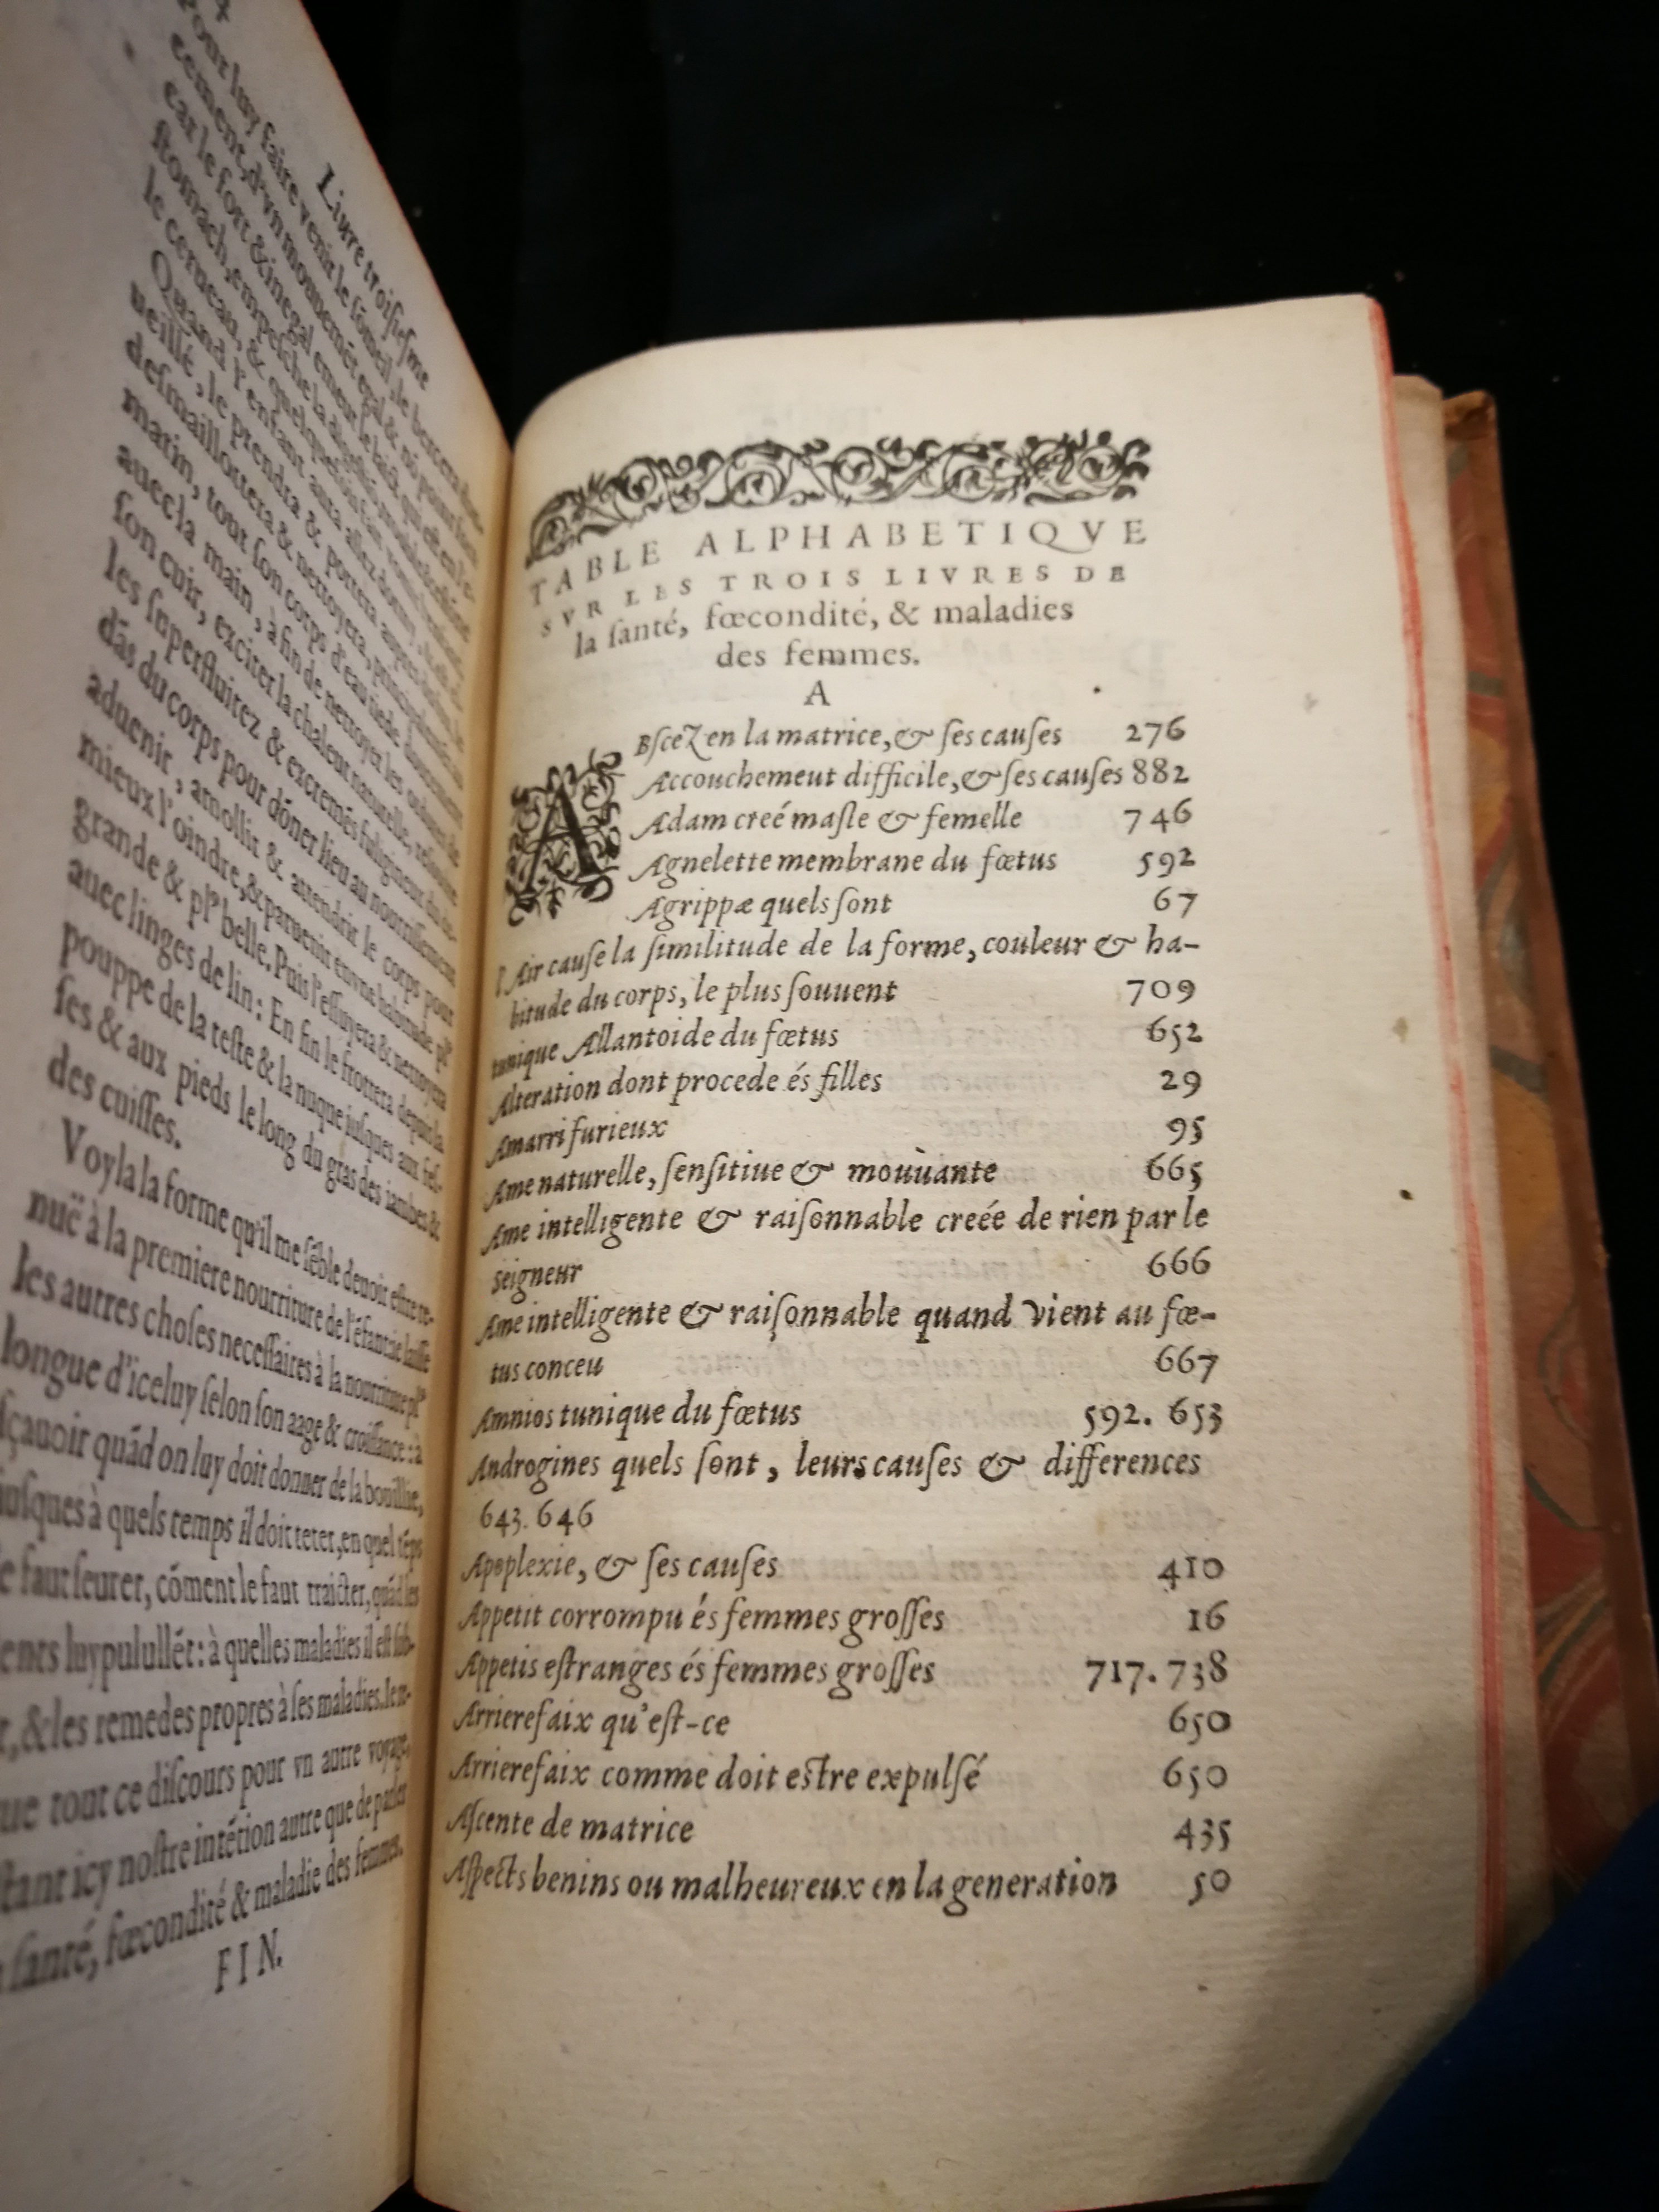 Liure troisiesme
pour luy faire venir le sõmeil, le bercera dou-
cement, d'vn mouuemẽt egal & nõ point fort
car le fort & inegal
stomach, empesche la
le cerueau, & quelquesfois
Quand l'enfant aura assez dormy,
ueillé, le prendra & portera aupres du feu, le
desmaillottera & nettoyera, principalement
matin, tout son corps d'eau tiede
auec la main, à fin de nettoyer les ordures de
son cuir, exciter la chaleur naturelle, resoudre
les superfluitez & excremẽs fuligineux du de-
dãs du corps pour dõner lieu au nourrissement
aduenir, amollir & attendrir le corps pour
mieux l'oindre, & paruenir en vne habitude plꝰ
grande & plꝰ belle. Puis l'essuyera & nettoyera
auec linges de lin: En fin le frottera depuis la
pouppe de la teste & la nuque iusques aux fes-
ses & aux pieds le long du gras des iambes &
des cuisses.
Voyla la forme qu'il me sẽble deuoir estre te-
nuë à la premiere nourriture de l'ẽfant: ie laisse
les autres choses necessaires à la nourriture plꝰ
longue d'iceluy selon son aage & croissance: à
sçauoir quãd on luy doit donner de la bouillie,
iusques à quels temps il doit teter, en quel tẽps
le faut seurer, cõment le faut traicter, quãd les
dents luy pulullẽt: à quelles maladies il est sub-
& les remedes propres à ses maladies. Ie re-
tout ce discours pour vn autre voyage,
icy nostre intẽtion autre que de parler
santé, fœcondité & maladie des femmes.
FIN.
TABLE ALPHABETIQVE
SVR LES TROIS LIVRES DE
la ſanté, fœcondité, & maladies
des femmes.
A
ABſceZ en la matrice, & ſes cauſes 276
Accouchemeut difficile, & ſes cauſes 882
Adam creé maſle & femelle 746
Agnelette membrane du fœtus 592
Agrippæ quels ſont 67
l'Air cauſe la ſimilitude de la forme, couleur & ha-
bitude du corps, le plus ſouuent 709
tunique Allantoide du fœtus 652
Alteration dont procede és filles 29
Amarri furieux 95
Ame naturelle, ſenſitiue & mouùante 665
Ame intelligente & raiſonnable creée de rien par le
Seigneur 666
Ame intelligente & raiſonnable quand vient au fœ-
tus conceu 667
Amnios tunique du fœtus 592. 653
Androgines quels ſont, leurs cauſes & differences
643. 646
Apoplexie, & ſes cauſes 410
Appetit corrompu és femmes groſſes 16
Appetis eſtranges és femmes groſſes 717. 738
Arrierefaix qu'eſt-ce 650
Arrierefaix comme doit eſtre expulſé 650
Aſcente de matrice 435
Aſpects benins ou malheureux en la generation 50